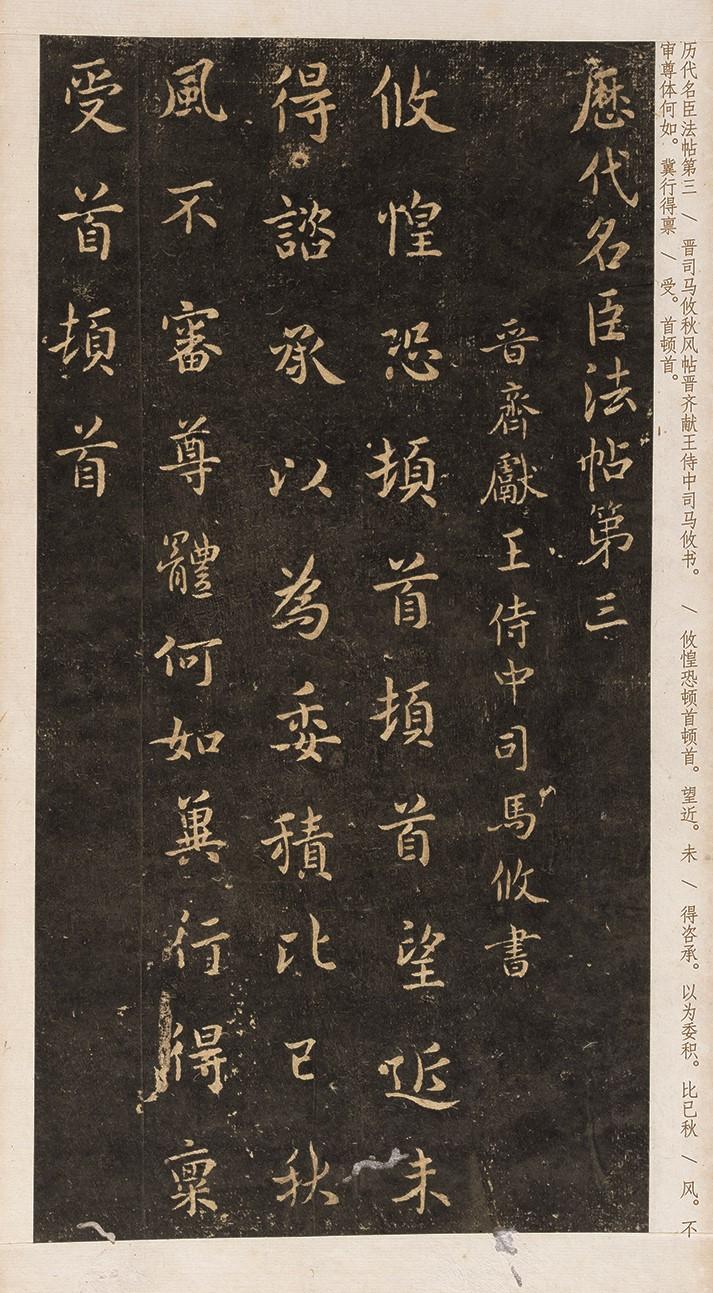 历代名臣法帖第三 \ 晋司马攸秋风帖晋齐献王侍中司马攸书。 \ 攸惶恐顿首顿首。望近。未 \ 得咨承。以为委积。比已秋 \ 风。不
审尊体何如。冀行得禀 \ 受。首顿首。
歷代名臣法帖第三
晉齊獻王侍中司馬攸書
攸惶恐頓首頓首望近未
得諮承以為委積比已秋
風不審尊體何如冀行得稟
受首頓首